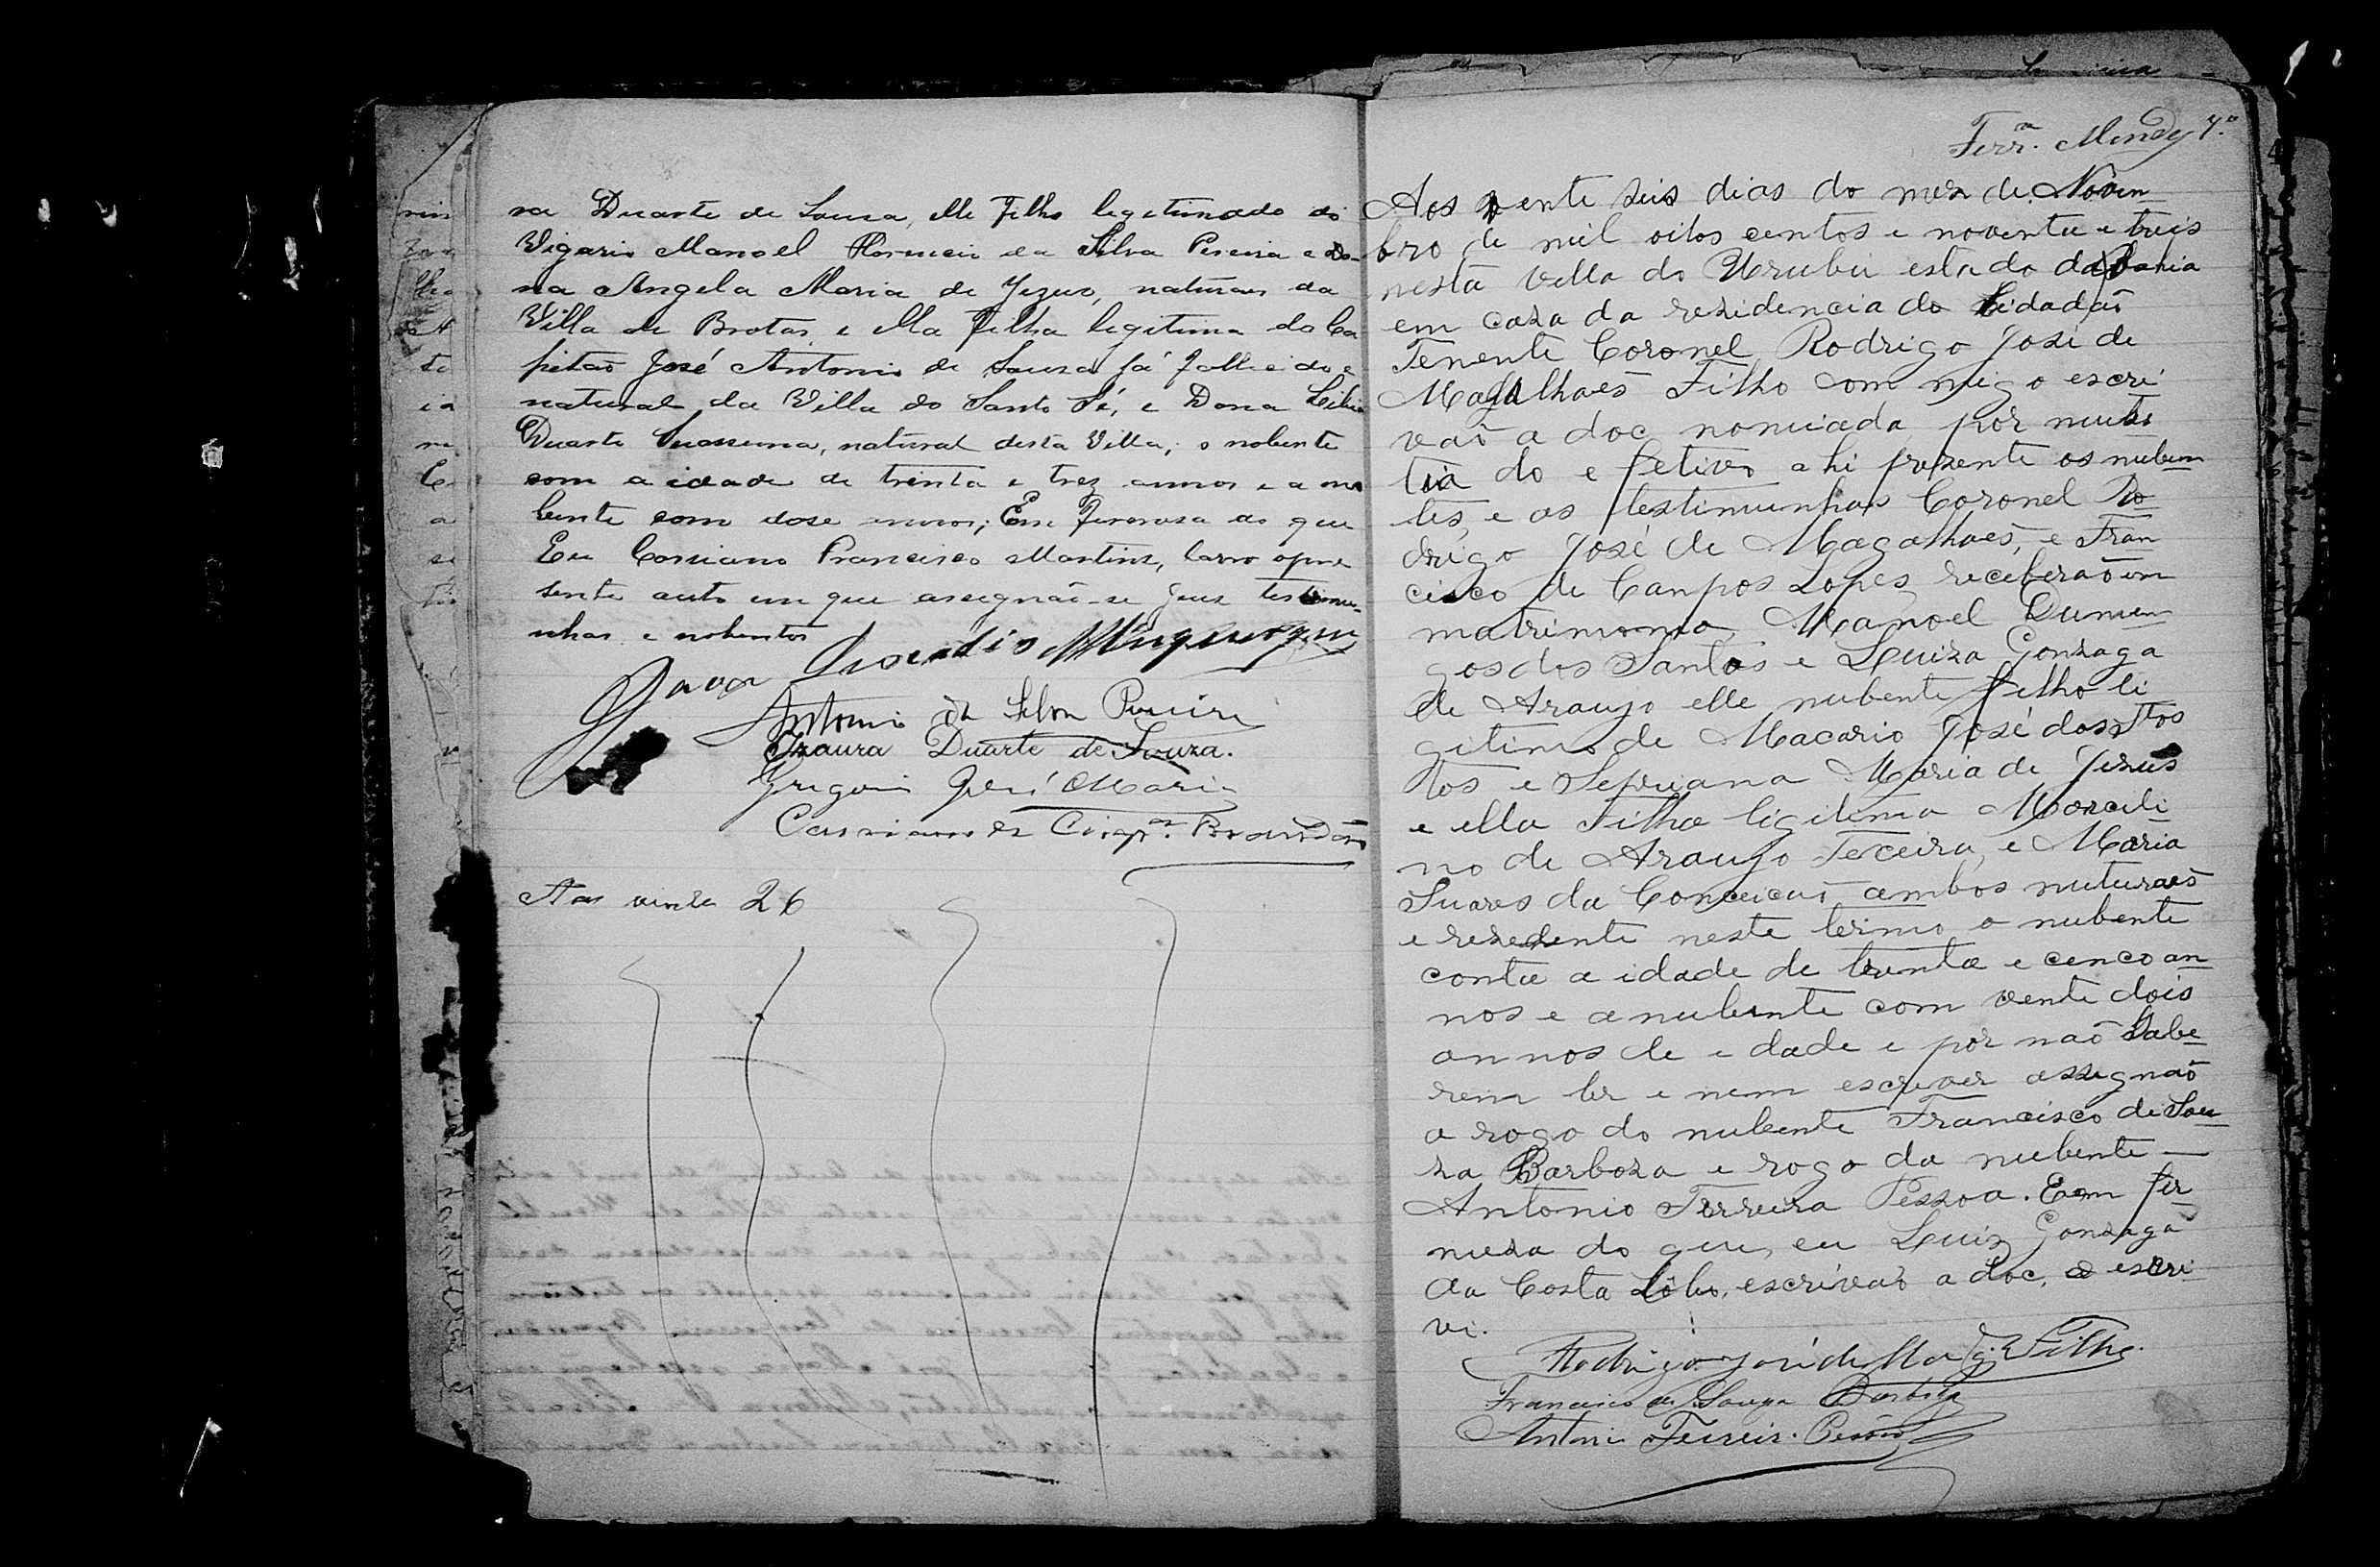 ra Duarte de Sousa, elle Filho legitimado do
Vigario Manoel Florencio da Silva Pereira e Do-
na Angela Maria de Jezus, naturaes da
Villa de Brotas, e ella Filha legitima do Ca
pitão José Antonio de Sousa já fallecido e
natural da Villa do Santo Sé, e Dona Libia
Duarte Suassuna, natural desta Villa; o nobente
com a idade de trinta e trez annos e a no
bente com dose annos; Em do que
Eu Cassiano Francisco Martins, lavro o pre
sente auto em que assegnão-se Juiz testemu-
nhas e nobentes
Antonio da Silva Pereira
Izaura Duarte de Souza.
Gregorio José Maria
Aos vinte 26
Ferrª. Mendes 7.º
Aos vente seis dias do mez de Novem
bro de mil oitos centos e noventa e treis
nesta villa do Urubu estado da Bahia
em caza da rezidencia do Cidadaõ
Tenente Coronel Rodrigo José de
Magalhaês Filho com migo escri
vaõ a doc nomiada por
do e fetivo ahi prezente os nuben
tes, e as testimunhas Coronel Ro
drigo José de Magalhaês, e Fran
cisco de Campos Lopes, receberaõ em
matrimonio Manoel Dumin
gos dos Santos e Luiza Gonzaga
de Araujo elle nubente filho li
gitimo de Macario José dos
tos e Maria de Jezus
e ella Filha ligitima Marceli
no de Araujo Teceira, e Maria
Suares da Conceicaõ ambos naturaes
e rezedente neste termo o nubente
conta a idade de trinta e cenco an
nos e a nubente com vente dois
annos de e dade e por naõ Sabe
rem ler e nem escrever assegnaõ
a rogo do nubente Francisco de Sou
za Barboza e rogo da nubente —
Antonio Ferreira Pessoa. Eem fir
meza do que, eu Luiz Gonzaga
da Costa Lôbo, escrivaõ a doc, o escri
vi.
Rodrigo José de Mag. Filho.
Francisco de Souza Barboza
Antonio Ferreir. Pessôa